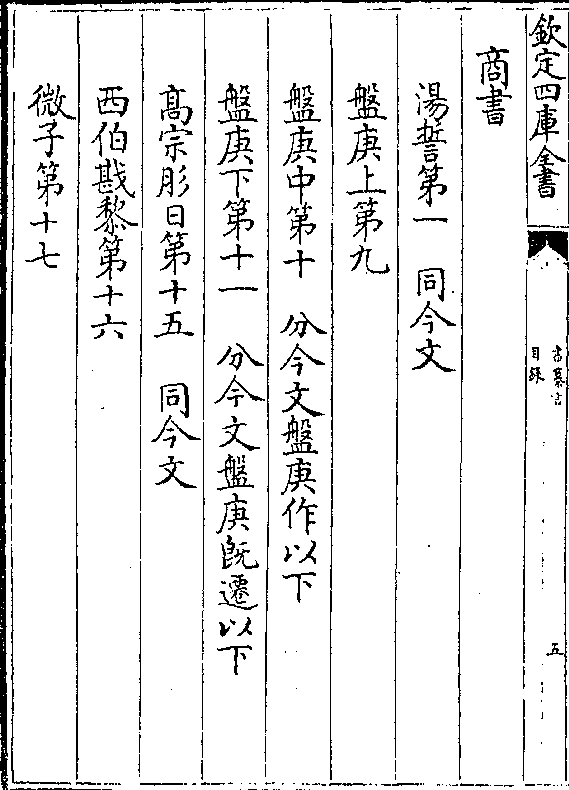 欽定四庫全書
書纂言
目録
五
商書
湯誓第一　同今文
盤庚上第九
盤庚中第十　分今文盤庚作以下
盤庚下第十一　分今文盤庚既遷以下
髙宗肜日第十五　同今文
西伯戡黎第十六
微子第十七